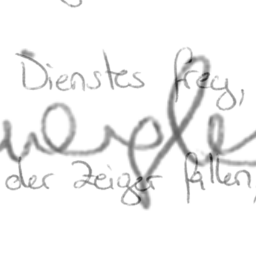 Dienstes frey,
der Zeiger fallen,